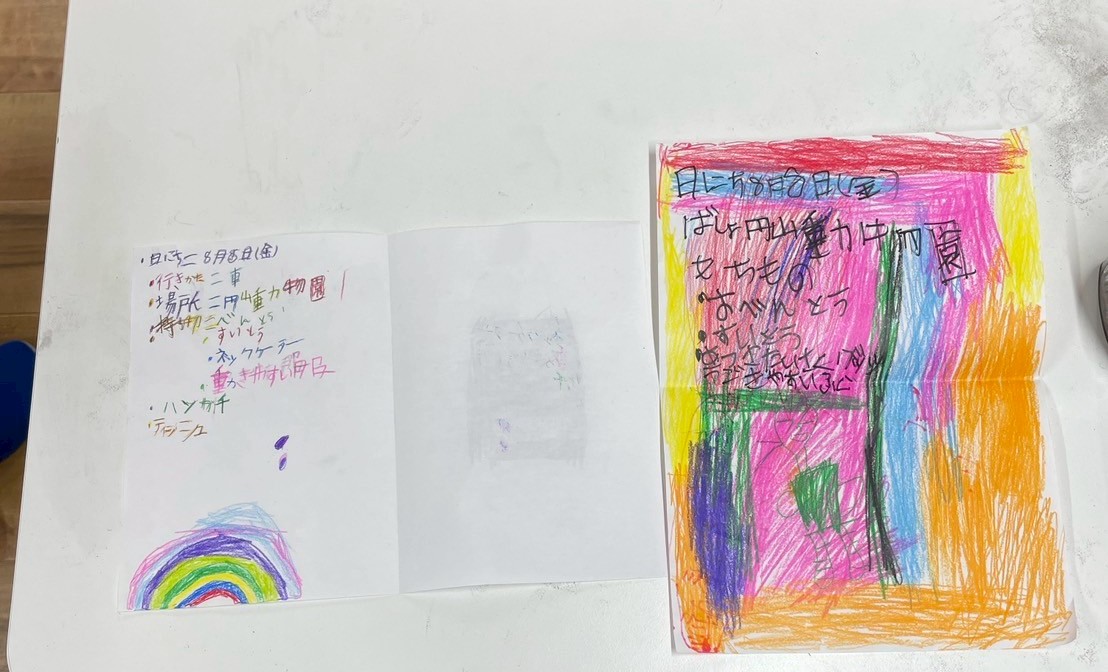 ・日にち二8月8日(金)
・行きかた二車
・場所二円山重力物園
・持ち物二べんとう
・すいとう
・ネックケーラー
重かきやすい服
・ハンカチ
・ティシュ
日にち8月8日(金)
ばしょ円山重力物園
もちもの
・おべんとう
・すいとう
うごきやすいふく